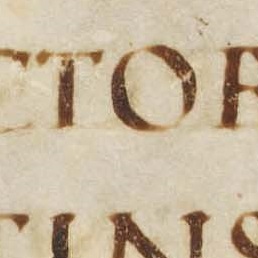 CTOR
TINS